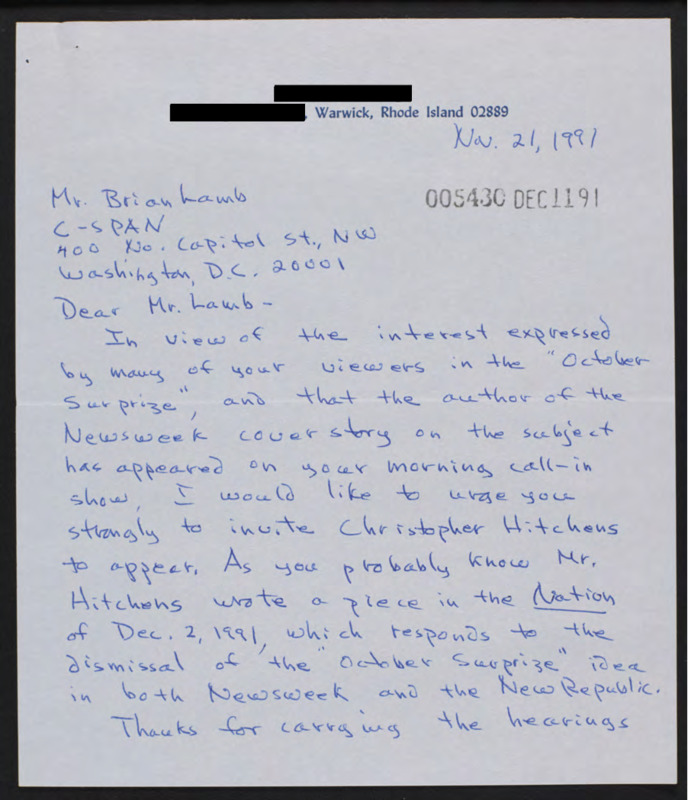 , Warwick, Rhode Island 02889
Nov. 21, 1991
Mr. Brian Lamb
005430 DEC1191
C-SPAN
400 No. Capitol St., NW
Washington, D.C. 20001
Dear Mr. Lamb -
In view of the interest expressed
by many of your viewers in the "October
Surprize", and that the author of the
Newsweek cover story on the subject
has appeared on your morning call-in
show, I would like to urge you
strongly to invite Christopher Hitchens
to appear. As you probably know Mr.
Hitchens wrote a piece in the Nation
of Dec. 2, 1991, which responds to the
dismissal of the "October Surprize" idea
in both Newsweek and the New Republic.
Thanks for carrying the hearings